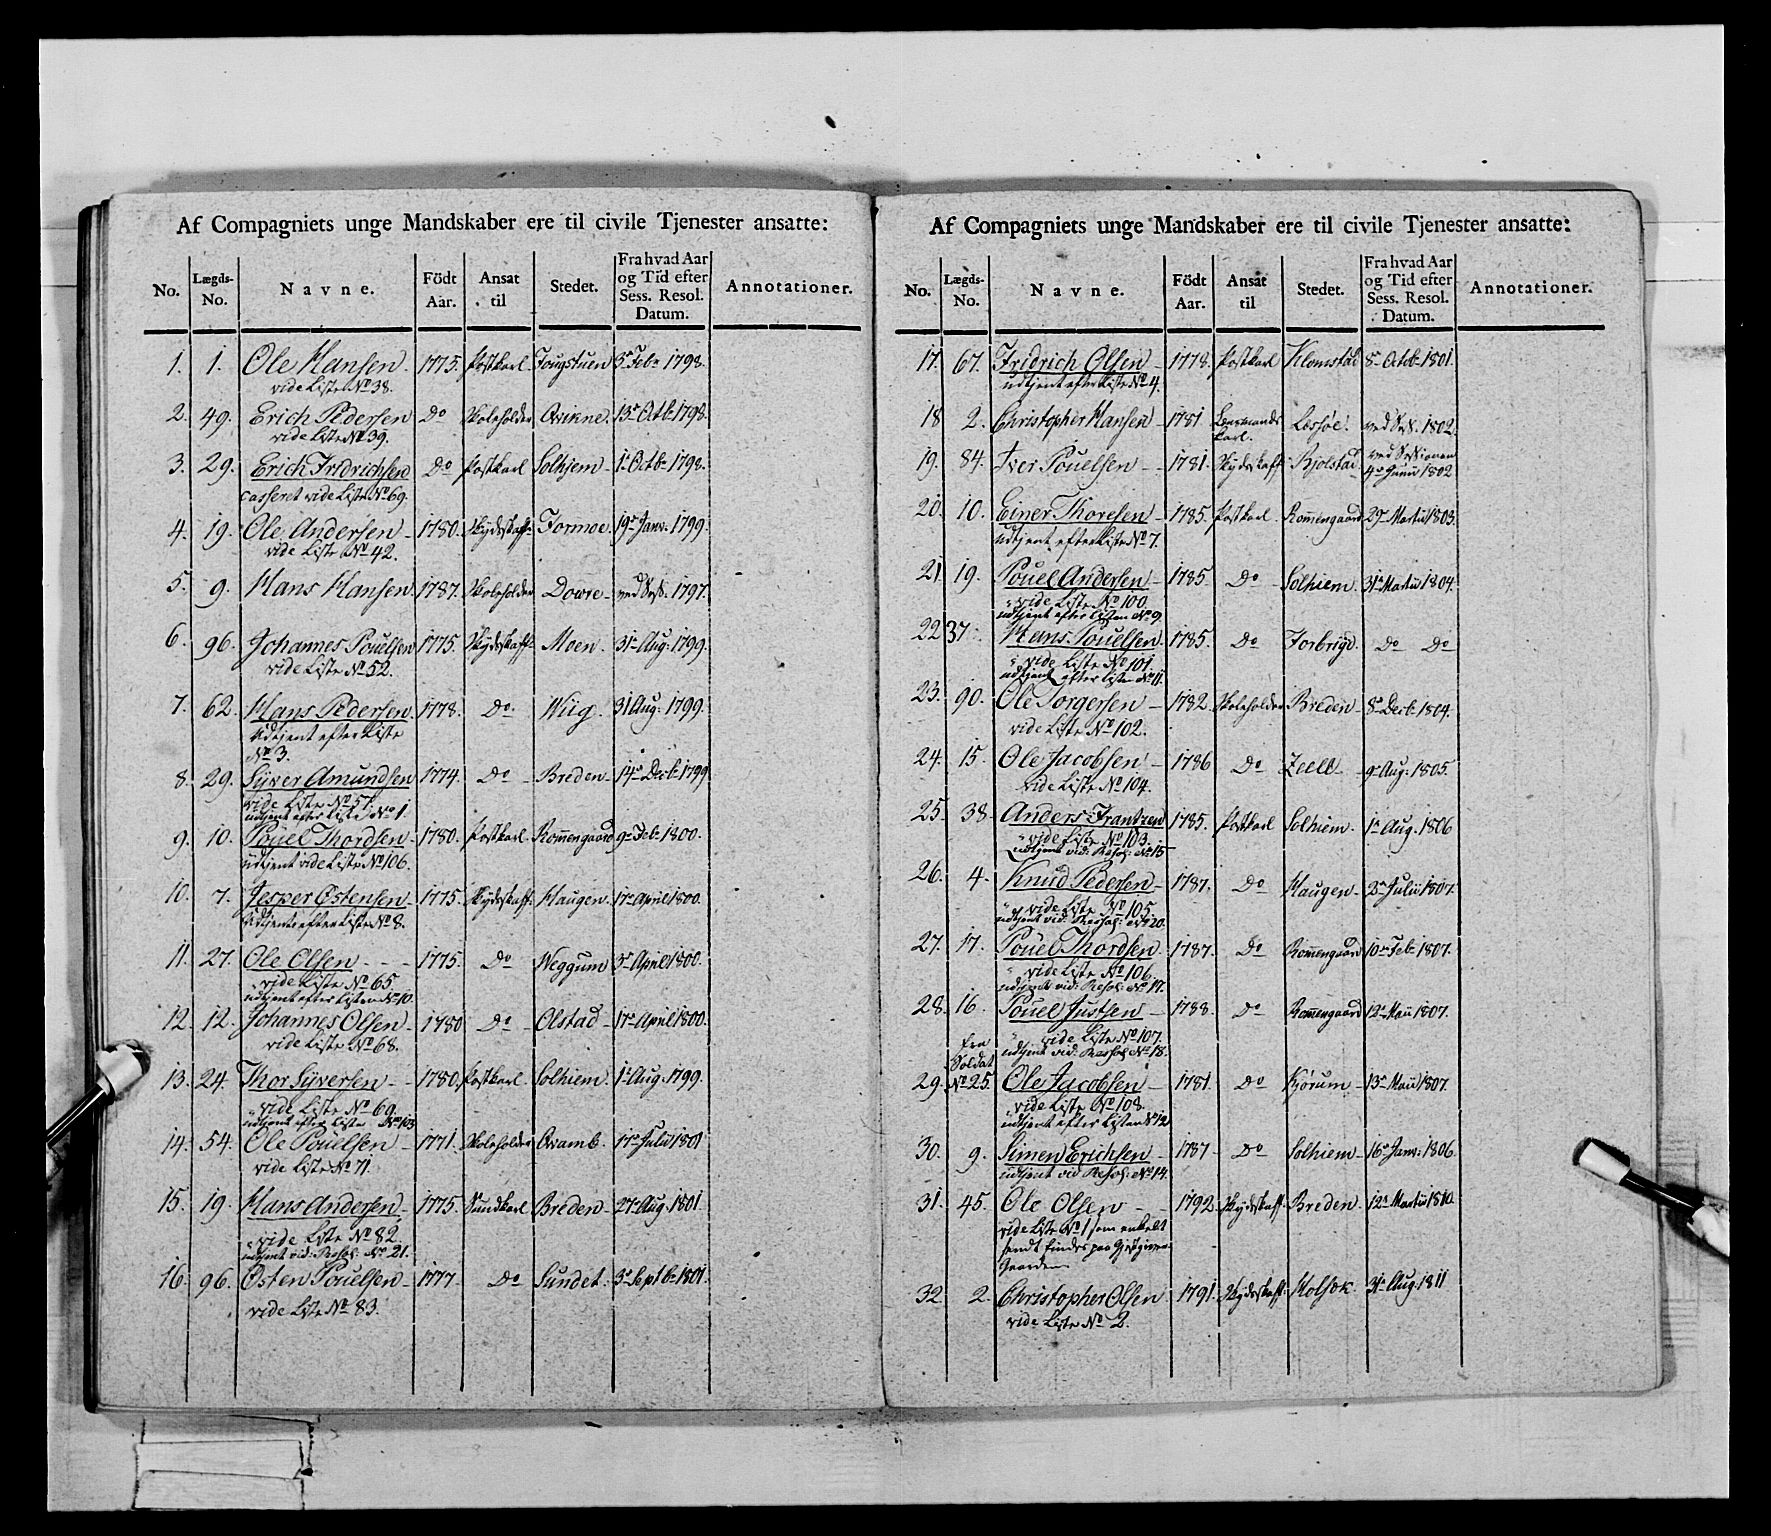 Af Compagniets unge Mandskaber ere til civile Tjenester ansatte:
No. Lægds-No. Navne. Födt Aar. Ansat til Stedet. Fra hvad Aar og Tid efter Sess. Resol. Datum. Annotationer.
1. 1. Ole Hansen. 1775. Postkarl Tougstuen 3e Febr 1798.
vide Liste No 38.
2. 49. Erich Pedersen Do Skoleholder Qvikne. 13e Octb. 1798.
vide Liste No 39.
3. 29. Erich Fridrichsen Do Postkarl Solhjem 1e Octb. 1798.
casseret vide Liste No 69.
4. 19. Ole Andersen 1780. Skydsskaff. Formoe. 19e Janv. 1799.
vide Liste No 42.
5. 9. Hans Hansen 1787. Skoleholder Dowre ved Sess. 1797.
6. 96. Johannes Pouelsen 1775. Skydsskaff. Moen. 31e Aug. 1799.
vide Liste No 52.
7. 62. Hans Pedersen 1778. Do Wiig. 31 Aug. 1799.
Udtjent efter Liste
No 3.
8. 29. Syver Amundsen 1774. Do Breden 14e Decb. 1799
vide Liste No 57.
udtjent efter Liste No 1.
9. 10. Pouel Thordsen 1780. Postkarl Rommengaard 9e Feb. 1800.
udtjent vide Liste No 106.
10. 7. Jesper Østensen 1775. Skydsskaff. Haugen. 17e April 1800.
Udtjent efter Liste No 8.
11. 27. Ole Olsen 1775. Do Weggum 3e April 1800.
vide Liste No 65
udtjent efter Listen No 10.
12. 12. Johannes Olsen 1780 Do Olstad 17e April 1800.
vide Liste No 68.
13. 24. Thor Syversen 1780. Postkarl. Solhiem 1e Aug. 1799.
vide Liste No 69.
udtjent efter Liste No 103
14. 54. Ole Pouelsen 1771. Skoleholder Qvamb. 17e Julii 1801
vide Liste No 71.
15. 19. Hans Andersen 1775. Sundkarl Breden 27e Aug. 1801.
vide Liste No 82.
udtjent vid: Resol: No 21.
16. 96. Østen Pouelsen 1777. Do Sundet. 3e Septb. 1801.
vide Liste No 83.
Af Compagniets unge Mandskaber ere til civile Tjenester ansatte:
No. Lægds-No. Navne. Födt Aar. Ansat til Stedet. Fra hvad Aar og Tid efter Sess. Resol. Datum. Annotationer.
17. 67. Fridrich Olsen 1778. Postkarl Klomstad 8e Octob. 1801.
udtjent efter Liste No 4.
18 2. Christopher Hansen 1781 Lensmands karl. Lessøe. ved Sess. 1802.
19. 84. Iver Pouelsen 1781. Skydsskaff. Kjolstad ved Sessionen 4e Junii 1802
20. 10. Einer Thoresen 1785. Postkarl Rommengaard 29e Martii 1803.
Udtjent efter Liste No 7.
21 19. Pouel Andersen 1785. Do Solhiem. 31e Martii 1804.
vide Liste No 100.
udtjent efter Listen No 9.
22 37. Hans Pouelsen 1785. Do Forbrigd. Do Do
vide Liste No 101.
udtjent efter Listen No 11.
23. 90. Ole Torgersen 1782. Skoleholder Breden 8e Decb. 1804.
vide Liste No 102.
24. 15. Ole Jacobsen 1786 Do 9e Aug. 1805.
vide Liste No 104.
25. 38. Anders Frantzen 1785. Postkarl Solhiem. 1e Aug. 1806
vide Liste No 103.
udtjent vid: Resol: No 15
26. 4. Knud Pedersen 1787. Do Haugen 2e Julii 1807.
vide Liste No 105
udtjent vid: Resol: No 20.
27. 17. Pouel Thordsen 1787. Do Rommengaard 10e Feb. 1807.
vide Liste No 106.
udtjent vid: Resol: No 17.
28. 16. Pouel Justsen 1788. Do Rommengaard 12e Maii 1807.
vide Liste No 107.
udtjent vid: Resol: No 18.
29. fra Soldat No 25. Ole Jacobsen 1781. Do Kjørum 13e Maii 1807.
vide Liste No 108.
udtjent efter Listen No 12
30. 9. Simen Erichsen 1787 Do Solhiem 16e Janv. 1806.
udtjent vid Resol: No 14.
31. 45. Ole Olsen 1792. Skydsskaff. Breden. 12e Martii 1810.
vide Liste No 1 som enkelt
sendt findes paa Gjestgiver-
Gaarden
32. 2. Christopher Olsen 1791. Skydsskaff. 31e Aug. 1811
vide Liste No 2.